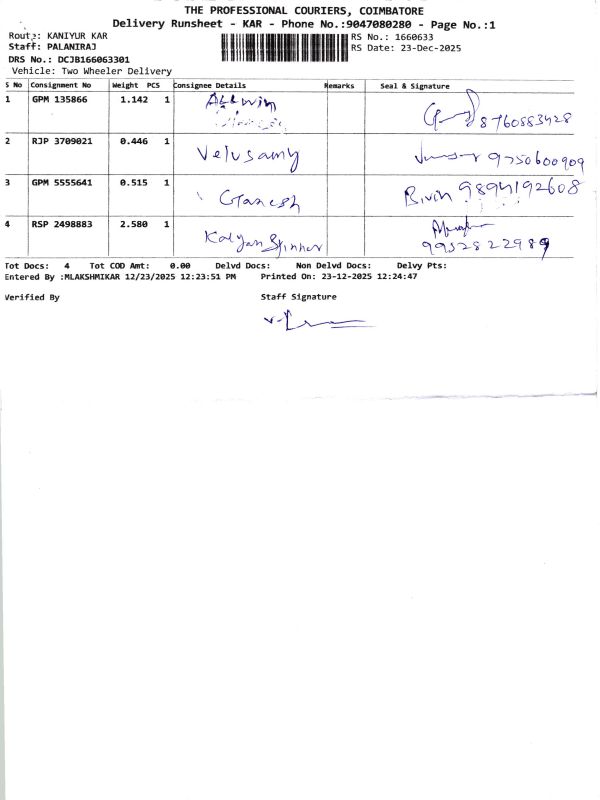 THE PROFESSIONAL COURIERS, COIMBATORE
Delivery Runsheet - KAR - Phone No.:9047080280 - Page No.:1
Route: KANIYUR KAR
RS No.: 1660633
Staff: PALANIRAJ
RS Date: 23-Dec-2025
DRS No.: DCJB166063301
Vehicle: Two Wheeler Delivery
S No Consignment No Weight PCS Consignee Details Remarks Seal & Signature
1 GPM 135866 1.142 1 Allwin
8760883428
2 RJP 3709021 0.446 1 Velusamy 9750600909
3 GPM 5555641 0.515 1 Ganesh Bivin 9894192608
4 RSP 2498883 2.580 1 Kalyan Spinner
9952822989
Tot Docs: 4 Tot COD Amt: 0.00 Delvd Docs: Non Delvd Docs: Delvy Pts:
Entered By :MLAKSHMIKAR 12/23/2025 12:23:51 PM Printed On: 23-12-2025 12:24:47
Verified By Staff Signature